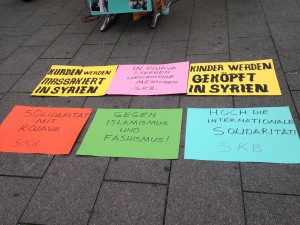 KURDEN WERDEN
MASSAKIERT
IN SYRIEN
IN ROJAVA
STERBEN
UNSCHULDIGE
MENSCHEN
SKB
KINDER WERDEN
GEKÖPFT
IN SYRIEN
SOLIDARITÄT
MIT
ROJAVA
SKB
GEGEN
ISLAMISMUS
UND
FASHISMUS!
HOCH DIE
INTERNATIONALE
SOLIDARITÄT
SKB